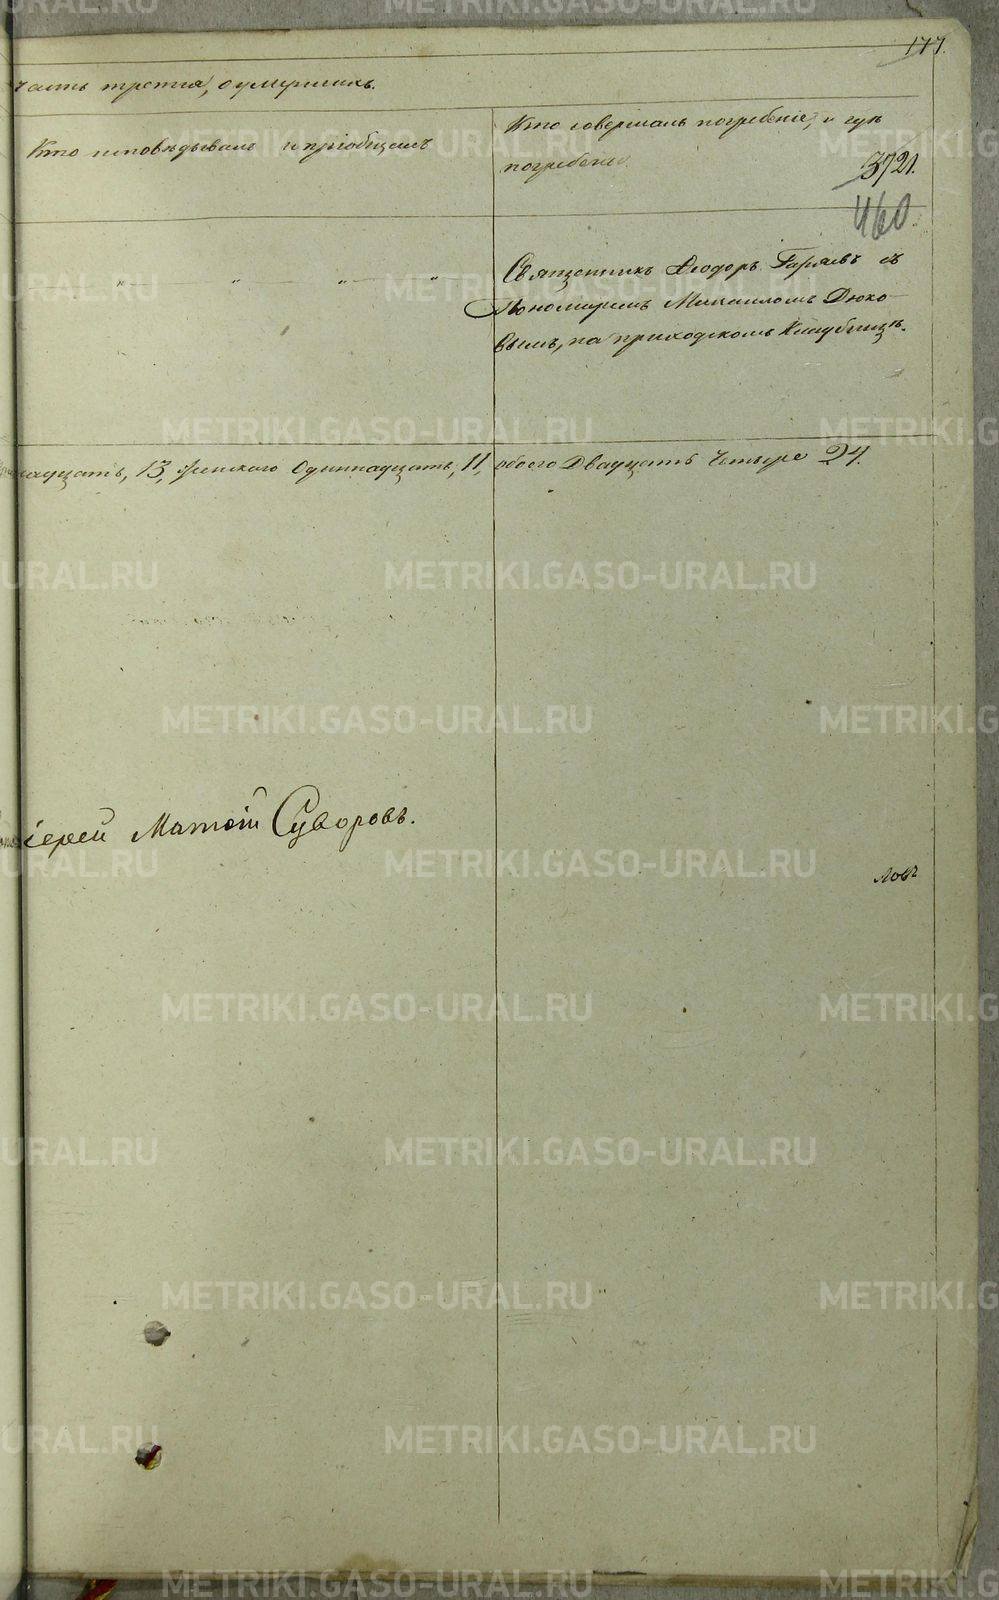 177.
часть третья, о умершихъ.
Кто исповѣдывалъ и пріобщалъ
Кто совершалъ погребеніе, и гдѣ
погребены
3721.
460.
Священникъ Ѳеодоръ Гаряевъ съ
Пономаремъ Михаиломъ Дюко-
вымъ, на приходскомъ Кладбищѣ.
надцать, 13, женскаго Одиннадцать, 11, обоего Двадцать Четыре 24.
іерей Матѳій Суворовъ.
METRIKI.GASO-URAL.RU